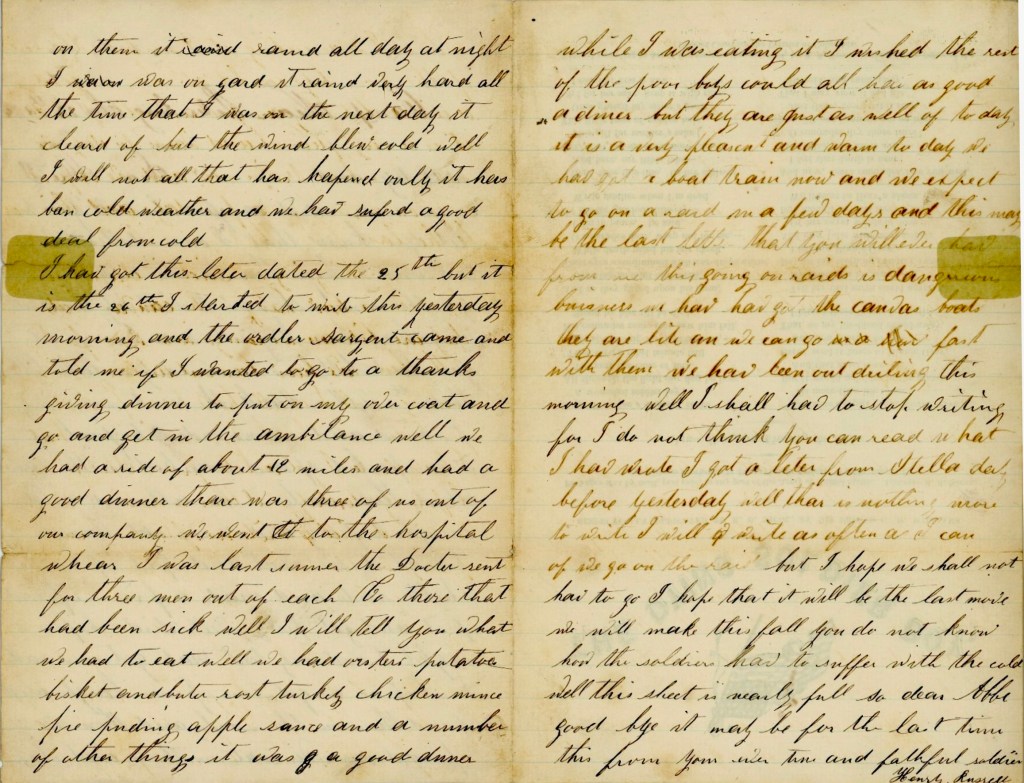 on them it raind all day at night
I was on gard it raind very hard all
the time that I was on the next day it
cleard of but the wind blew cold well
I will not all that has hapend only it has
ban cold weather and we had suferd a good
deal from cold
I had got this leter dated the 25th but it
is the 26th I started to write this yesterday
morning and the ordler sargent came and
told me if I wanted to go to a thanks
giving dinner to put on my over coat and
go and get in the ambilance well we
had a ride of about 12 miles and had a
good dinner thare was three of us out of
our company we went to the hospital
whear I was last sumer the Docter sent
for three men out of each Co those that
had been sick well I will tell you what
we had to eat well we had oisters potatoes
bisket and buter rost turkey chicken mince
pie puding apple sance and a number
of other things it was a good dinner
while I was eating it I wished the rest
of the poor boys could all have as good
a diner but they are gust as well of to day
it is a very pleasent and warm to day we
had got a boat train now and we expect
to go on a raid in a few days and this may
be the last that you will ever
from me this going on raids is dangreous
buisness had got the canvas boats
they are lite an we can go fast
with them we had been out driling this
morning well I shall had to stop writing
for I do not think you can read what
I had wrote I got a leter from Stella day
before yesterday well thar is nothing more
to write I will write as often as I can
of we go on the raid but I hope we shall not
had to go I hope that it will be the last move
we will make this fall you do not know
how the soldiers had to suffer with the cold
well this sheet is nearly full so dear Abbe
good bye it may be for the last time
this from your ever true and faithful soldier
Henry Russell